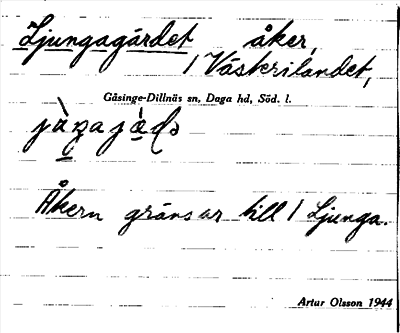 Ljungagärdet åker,
/ Väskrilandet,
Gåsinge-Dillnäs sn, Daga hd, Söd. l.
Åkern gränsar till / Ljunga.
Artur Olsson 1944